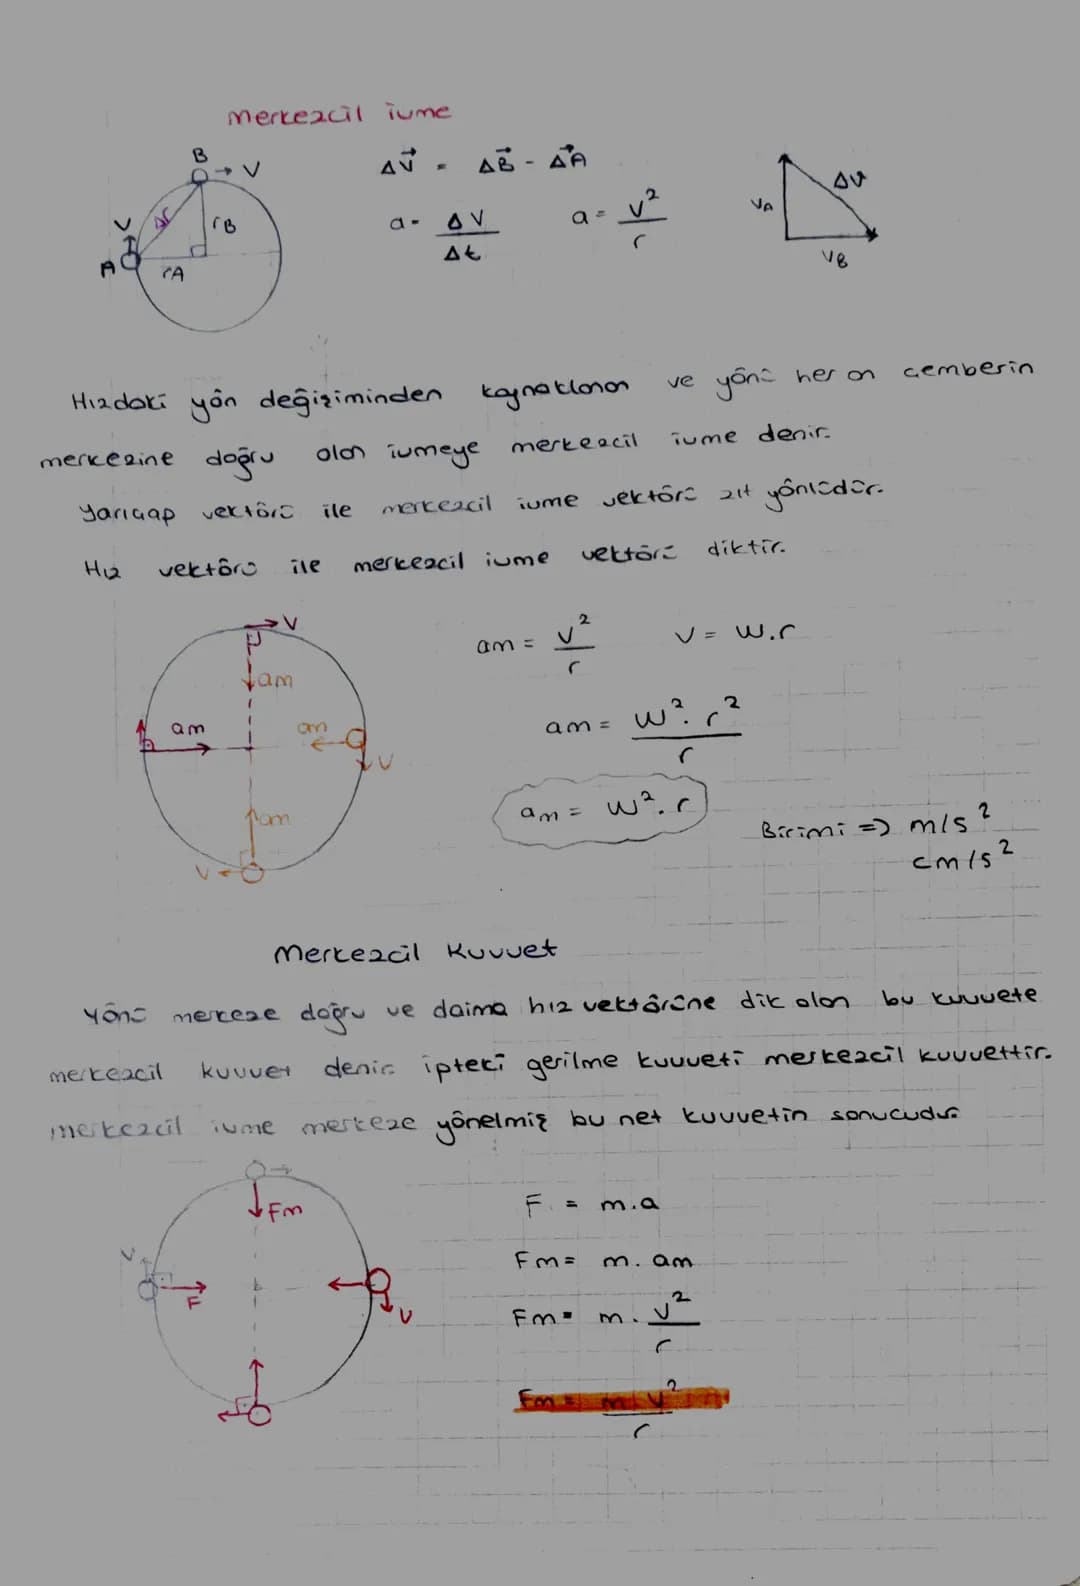 Merkezcil ivme
B
V
ΔV⃗ = ΔB⃗ - ΔA⃗
ΔV
VA
VB
V
Δr
rB
a = ΔV / Δt
a = V² / r
A
rA
Hızdaki yön değişiminden kaynaklanan ve yönü her an çemberin
merkezine doğru olan ivmeye merkezcil ivme denir.
Yarıçap vektörü ile merkezcil ivme vektörü zıt yönlüdür.
Hız vektörü ile merkezcil ivme vektörü diktir.
V
am
am
am
V
am
V
am = V² / r
V = W.r
am = W². r² / r
am = W². r
Birimi => m/s²
cm/s²
Merkezcil Kuvvet
Yönü merkeze doğru ve daima hız vektörüne dik olan bu kuvvete
merkezcil kuvvet denir. İpteki gerilme kuvveti merkezcil kuvvettir.
merkezcil ivme merkeze yönelmiş bu net kuvvetin sonucudur.
Fm
V
F
V
F = m.a
Fm = m. am
Fm = m. V² / r
Fm = m V² / r